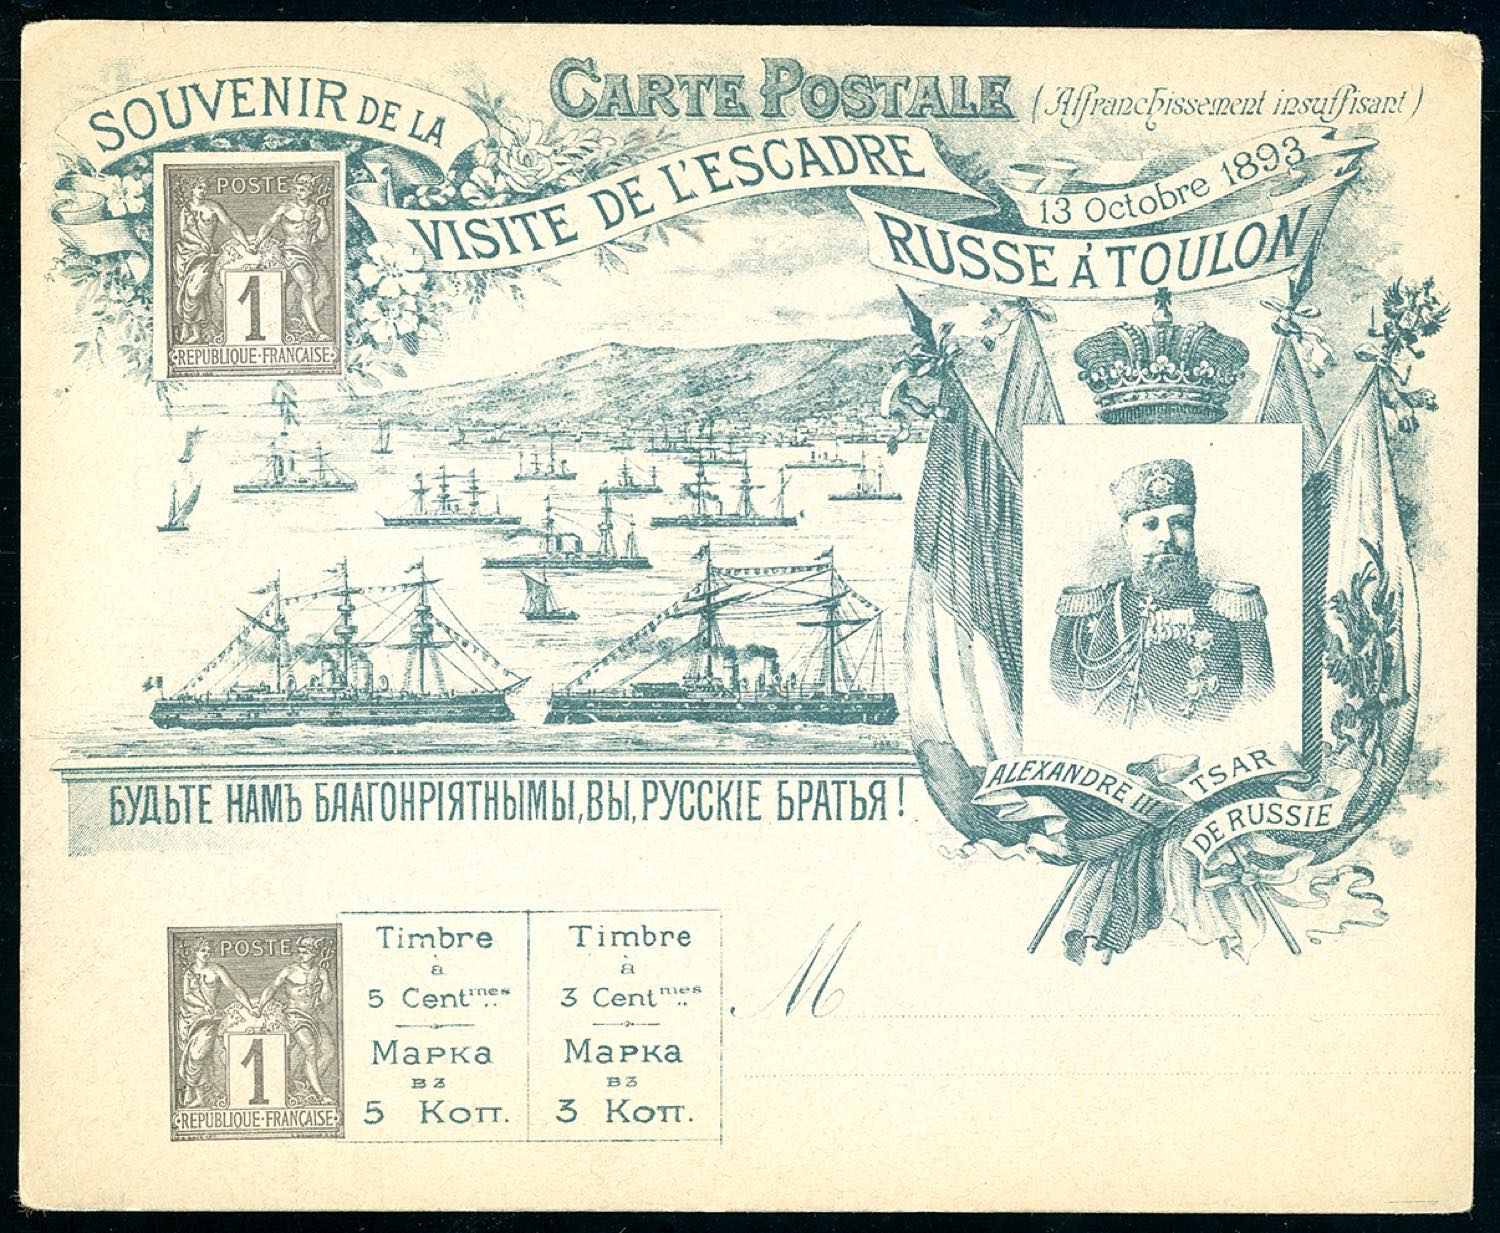 CARTE POSTALE (Affranchissement insuffisant)
SOUVENIR DE LA
VISITE DE L'ESCADRE
RUSSE À TOULON
13 Octobre 1893
POSTE
1
REPUBLIQUE·FRANÇAISE
БУДЬТЕ НАМЪ БЛАГОНРІЯТНЫМЫ, ВЫ, РУССКІЕ БРАТЬЯ!
ALEXANDRE III TSAR
DE RUSSIE
POSTE
1
REPUBLIQUE·FRANÇAISE
Timbre
à
5 Cent.mes
Марка
вз
5 Коп.
Timbre
à
3 Cent.mes
Марка
вз
3 Коп.
M